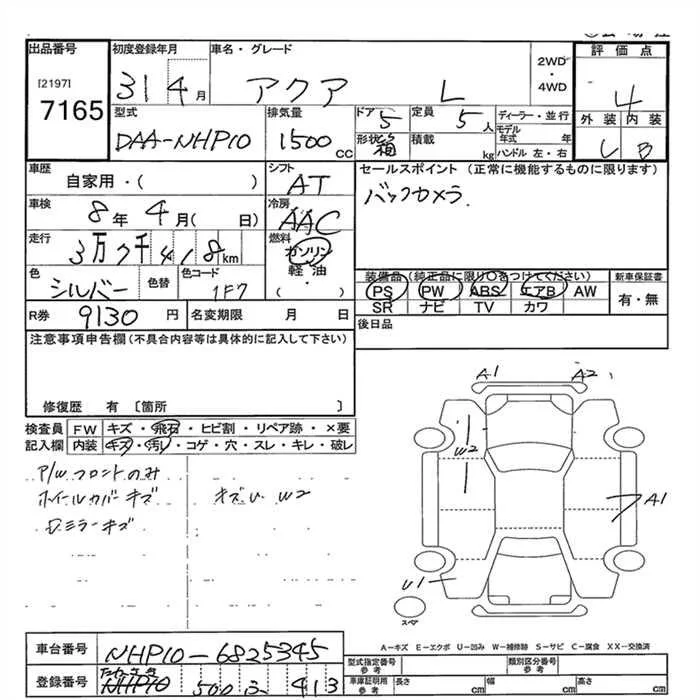 出品番号 初度登録年月 車名・グレード 2WD・4WD 評価点
[2197] 7165 31 4月 アクア L 4
型式 排気量 ドア 5 定員 5人 ディーラー・並行 外装 内装
DAA-NHP10 1500cc 形状 箱 積載 kg モデル年式 年 ハンドル 左・右 B
車歴 シフト セールスポイント (正常に機能するものに限ります)
自家用・( ) AT バックカメラ
車検 冷房
8年 4月( 日) AAC
走行 燃料
3万7千418km ガソリン
色 色替 色コード 軽油 装備品 (純正品に限り〇をつけてください) 新車保証書
シルバー 1F7 ( ) PS PW ABS エアB AW 有・無
SR ナビ TV カワ
R券 9130円 名変期限 月 日 後日品
注意事項申告欄(不具合内容等は具体的に記入して下さい)
修復歴 有 〔箇所 〕
検査員 FW キズ・飛石・ヒビ割・リペア跡・×要
記入欄 内装 キズ・汚レ・コゲ・穴・スレ・キレ・破レ
P/W フロントのみ
ホイールカバーキズ キズU W2
D.ミラーキズ
A1 A2
W2
A1
U1
スペア
A-キズ E-エクボ U-凹み W-補修跡 S-サビ C-腐食 XX-交換済
車台番号 NHP10-6825345
登録番号 NHP10 500 413
型式指定番号 参考 類別区分番号 参考
車庫証明用 参考 長さ cm 幅 cm 高さ cm